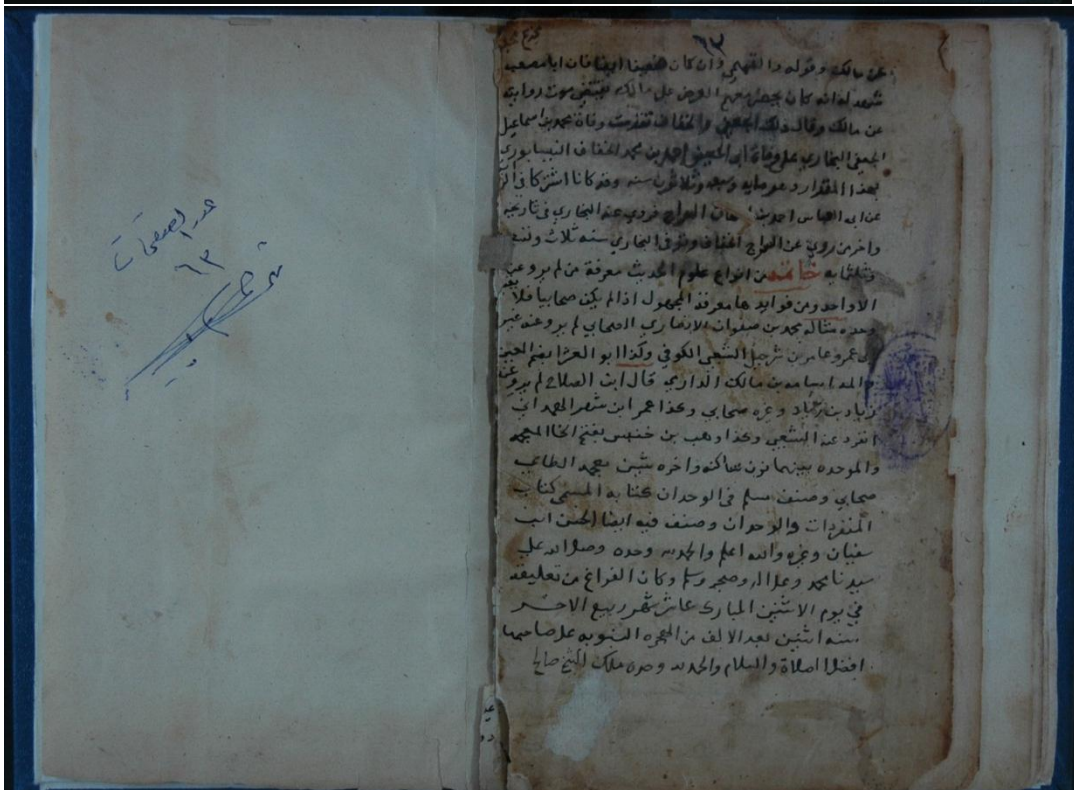 ٦٣
عن مالك وقوله والفهمي وان كان ضعيفا ايضا فان ابا مصعب
شهد له انه كان يحضر معهم العرض على مالك
عن مالك وقال ذلك الجعفي والخفاف تقدمت وفاة محمد بن اسماعيل
الجعفي البخاري على وفاة ابي الحسين احمد بن محمد الخفاف النيسابوري
بهذا المقدار وهو مايه وسبعه وثلاثون سنه وقد كانا اشتركا في
عن ابي العباس احمد بن السراج فروي عنه البخاري في تاريخه
واخر من روي عن السراج الخفاف وتوفي البخاري سنه
وثلثمايه خاتمه من انواع علوم الحديث معرفة من لم يرو عنه
الا واحد ومن فوايدها معرفة المجهول اذا لم يكن صحابيا فلا
وحده مثاله محمد بن صفوان الانصاري الصحابي لم يرو عنه غير
ابي عمرو عامر بن شرحبيل الشعبي الكوفي وكذا ابو العشرا بضم العين
والمد اسامه بن مالك الدارمي قال ابن الصلاح لم يرو عن
زياد بن وغيره صحابي وكذا عمر ابن شهر الهمداني
انفرد عنه الشعبي وكذا وهب بن خنبش بفتح الخا المعجمه
والموحده بينهما نون ساكنه واخره شين معجمه الطاءي
صحابي وصنف مسلم في الوحدان كتابه المسمى كتاب
المنفردات والوحدان وصنف فيه ايضا الحسن ابن
سفيان وغيره والله اعلم والحمد لله وحده وصلى الله على
سيدنا محمد وعلى اله وصحبه وسلم وكان الفراغ من تعليقه
في يوم الاثنين المبارك عاشر شهر ربيع الاخر
سنه اثنين بعد الالف من الهجره النبويه على صاحبها
افضل الصلاة والسلام والحمد لله وحده ملك الشيخ صالح
عدد الصفحات
٦٣